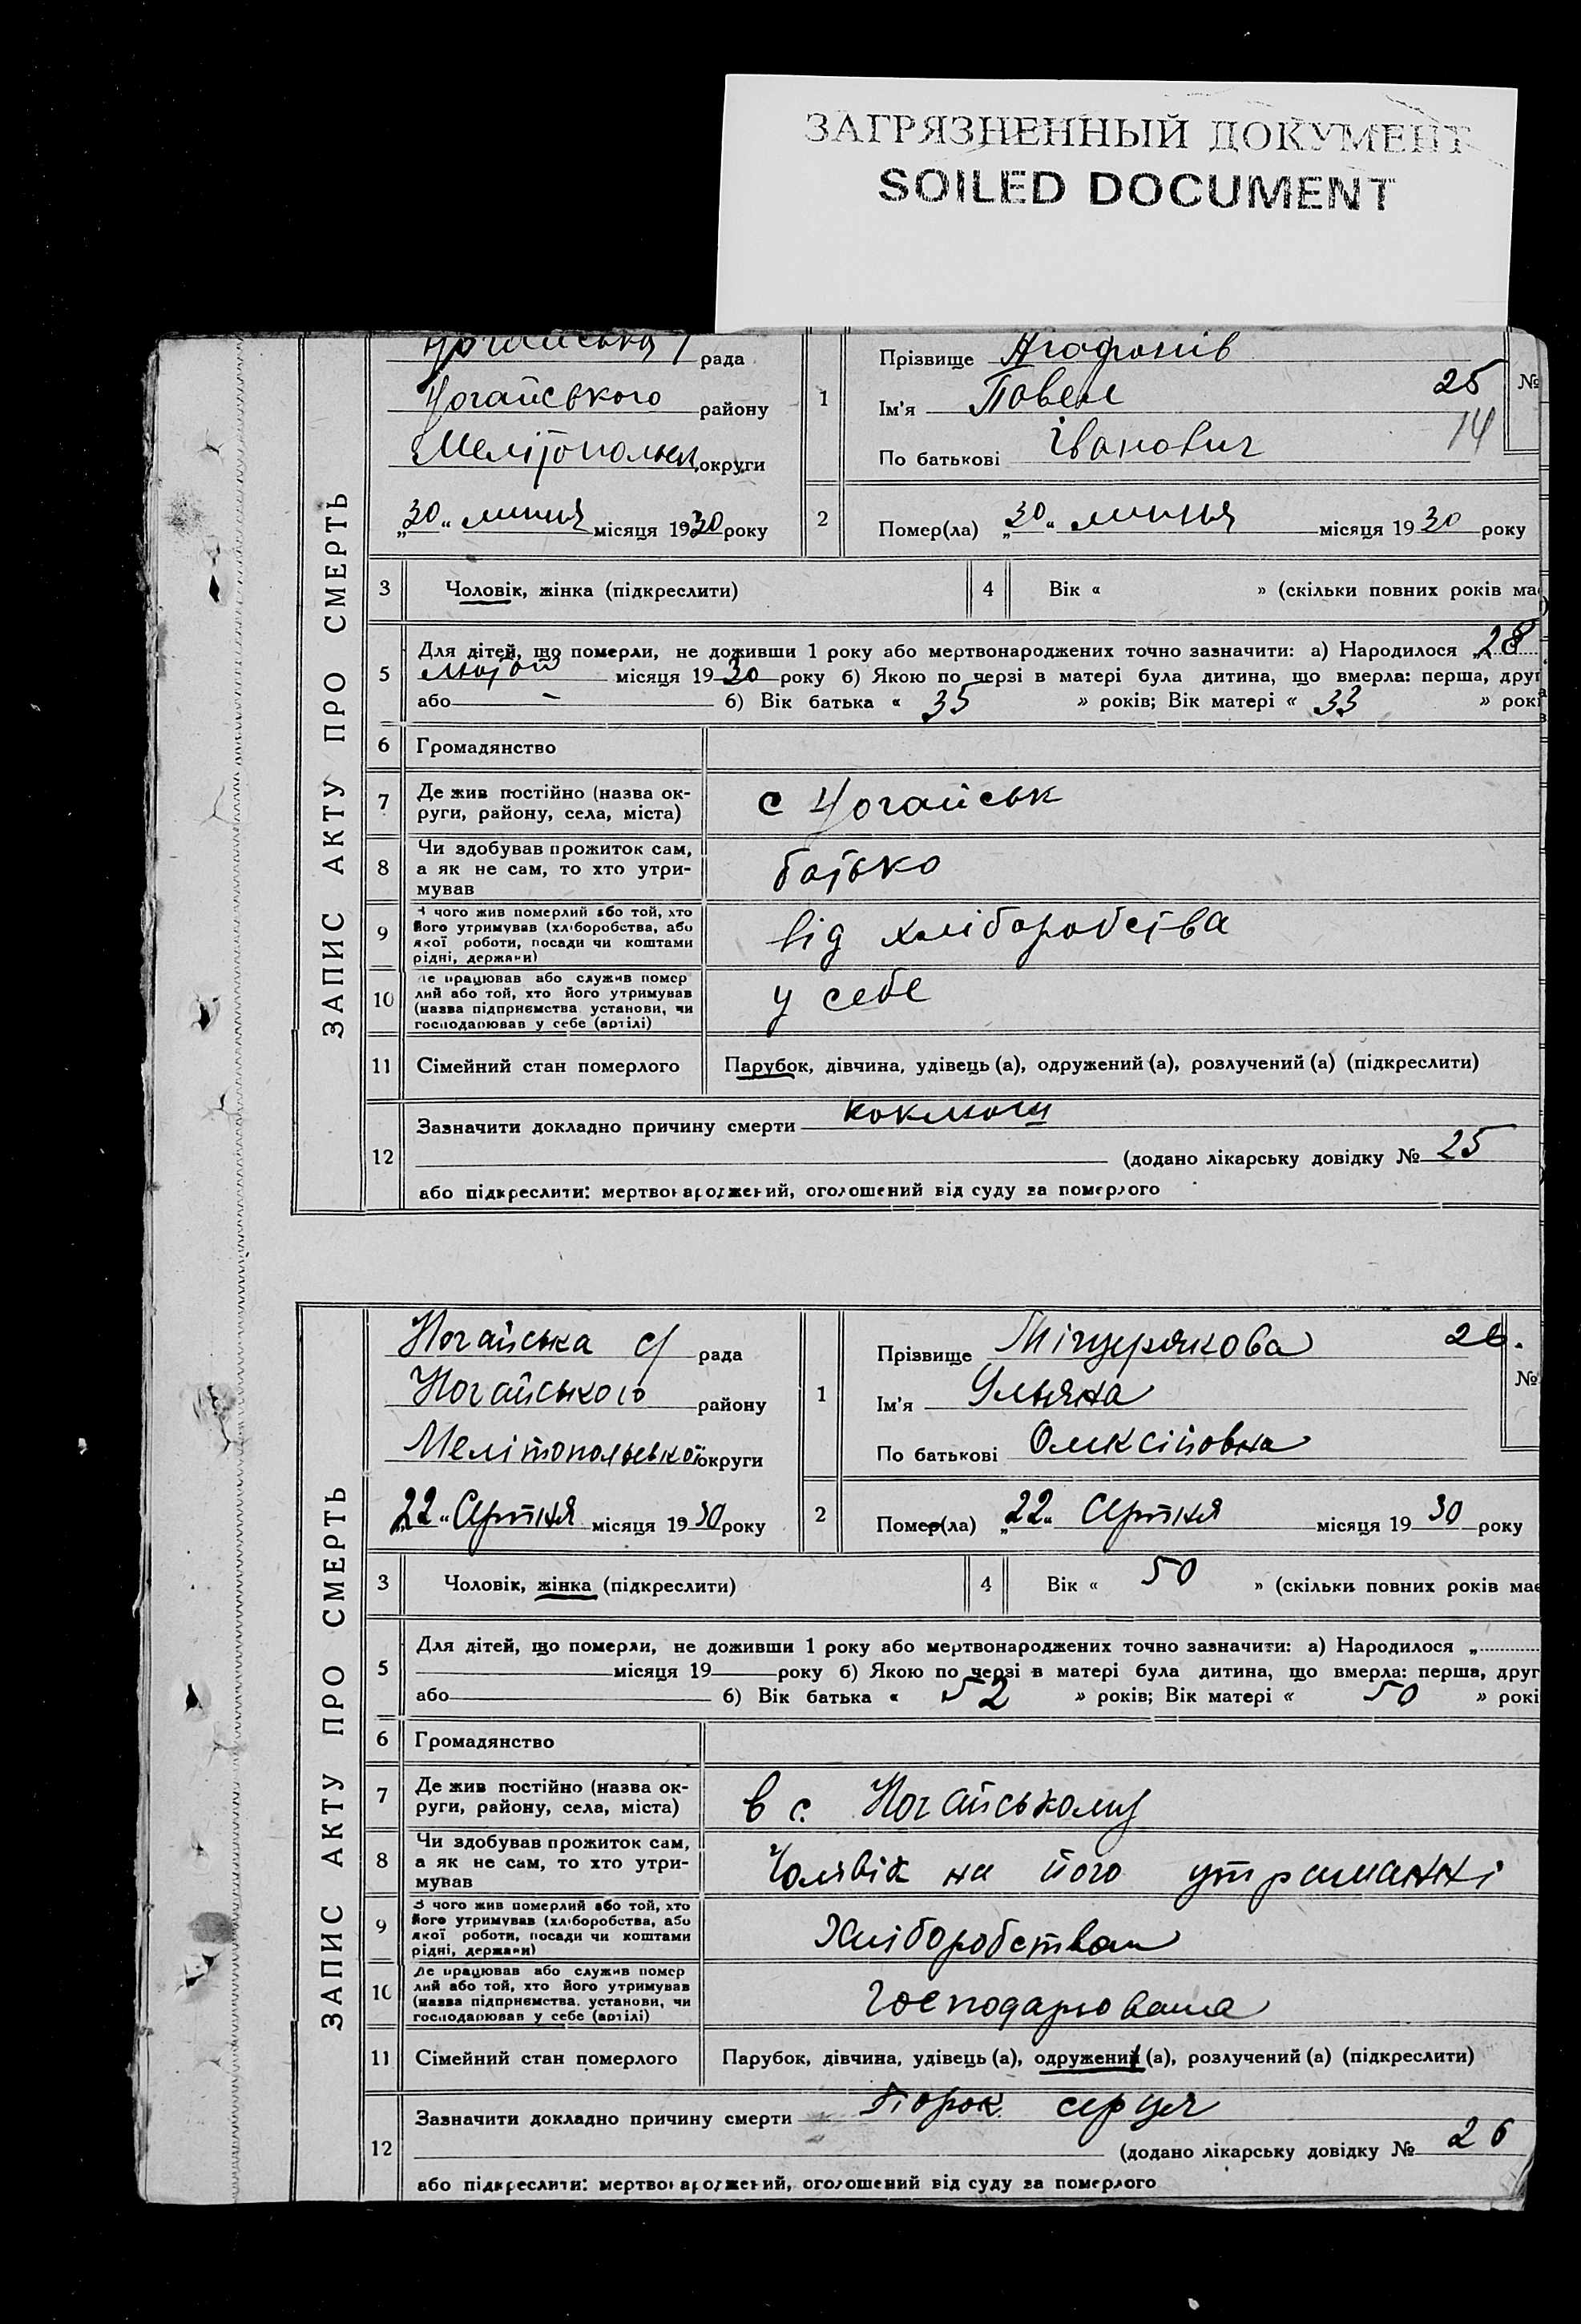 ЗАГРЯЗНЕННЫЙ ДОКУМЕНТ
SOILED DOCUMENT
ЗАПИС АКТУ ПРО СМЕРТЬ
Ногайська рада
Ногайського району
Мелітопольськ. округи
„30“ липня місяця 1930 року
1
Прізвище Агафонів
Ім'я Павел
25
№
По батькові Іванович
14
2
Помер(ла) „30“ липня місяця 1930 року
3 Чоловік, жінка (підкреслити)
4 Вік « » (скільки повних років має
5
Для дітей, що померли, не доживши 1 року або мертвонароджених точно зазначити: а) Народилося „28
лютого місяця 1930 року б) Якою по черзі в матері була дитина, що вмерла: перша, друг
або — б) Вік батька « 35 » років; Вік матері « 33 » рокі
6 Громадянство
7
Де жив постійно (назва ок-
руги, району, села, міста)
с Ногайськ
8
Чи здобував прожиток сам,
а як не сам, то хто утри-
мував
батько
9
З чого жив померлий або той, хто
його утримував (хліборобства, або
якої роботи, посади чи коштами
рідні, держави)
від хліборобства
10
Де працював або служив помер
лий або той, хто його утримував
(назва підприємства установи, чи
господарював у себе (артілі)
у себе
11 Сімейний стан померлого
Парубок, дівчина, удівець (а), одружений (а), розлучений (а) (підкреслити)
12
Зазначити докладно причину смерти коклюш
(додано лікарську довідку № 25
або підкреслити: мертвонароджений, оголошений від суду за померлого
ЗАПИС АКТУ ПРО СМЕРТЬ
Ногайська с/ рада
Ногайського району
Мелітопольської округи
„22“ Серпня місяця 1930 року
1
Прізвище Міщерякова
26.
№
Ім'я Ульяна
По батькові Олексіївна
2
Помер(ла) „22“ Серпня місяця 1930 року
3 Чоловік, жінка (підкреслити)
4 Вік « 50 » (скільки повних років має
5
Для дітей, що померли, не доживши 1 року або мертвонароджених точно зазначити: а) Народилося „
місяця 19 року б) Якою по черзі в матері була дитина, що вмерла: перша, друг
або б) Вік батька « 52 » років; Вік матері « 50 » рокі
6 Громадянство
7
Де жив постійно (назва ок-
руги, району, села, міста)
в с. Ногайському
8
Чи здобував прожиток сам,
а як не сам, то хто утри-
мував
Чолвік на його утриманні
9
З чого жив померлий або той, хто
його утримував (хліборобства, або
якої роботи, посади чи коштами
рідні, держави)
Хліборобством
10
Де працював або служив помер
лий або той, хто його утримував
(назва підприємства. установи, чи
господарював у себе (артілі)
Господарювала
11 Сімейний стан померлого
Парубок, дівчина, удівець (а), одружений (а), розлучений (а) (підкреслити)
12
Зазначити докладно причину смерти Порок серця
(додано лікарську довідку № 26
або підкреслити: мертвонароджений, оголошений від суду за померлого